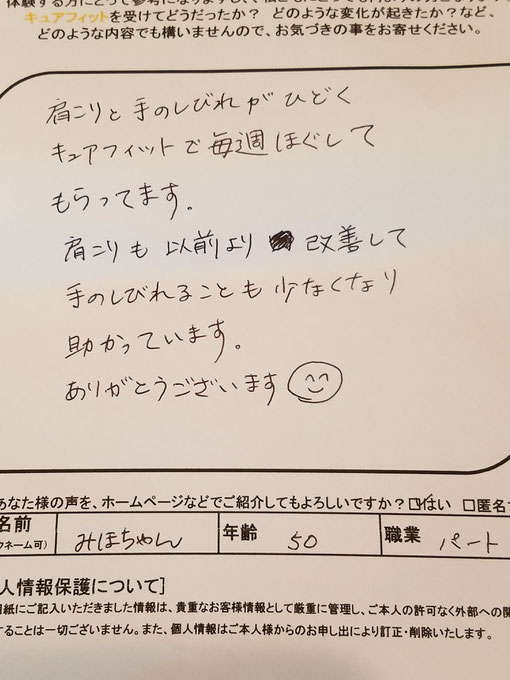 キュアフィットを受けてどうだったか？ どのような変化が起きたか？など、
どのような内容でも構いませんので、お気づきの事をお寄せください。
肩こりと手のしびれがひどく
キュアフィットで毎週ほぐして
もらってます。
肩こりも以前より改善して
手のしびれることも少なくなり
助かっています。
ありがとうございます
あなた様の声を、ホームページなどでご紹介してもよろしいですか？ □はい □匿名
名前 みほちゃん 年齢 50 職業 パート
クネーム可）
人情報保護について］
用紙にご記入いただきました情報は、貴重なお客様情報として厳重に管理し、ご本人の許可なく外部への開
することは一切ございません。また、個人情報はご本人様からのお申し出により訂正・削除いたします。